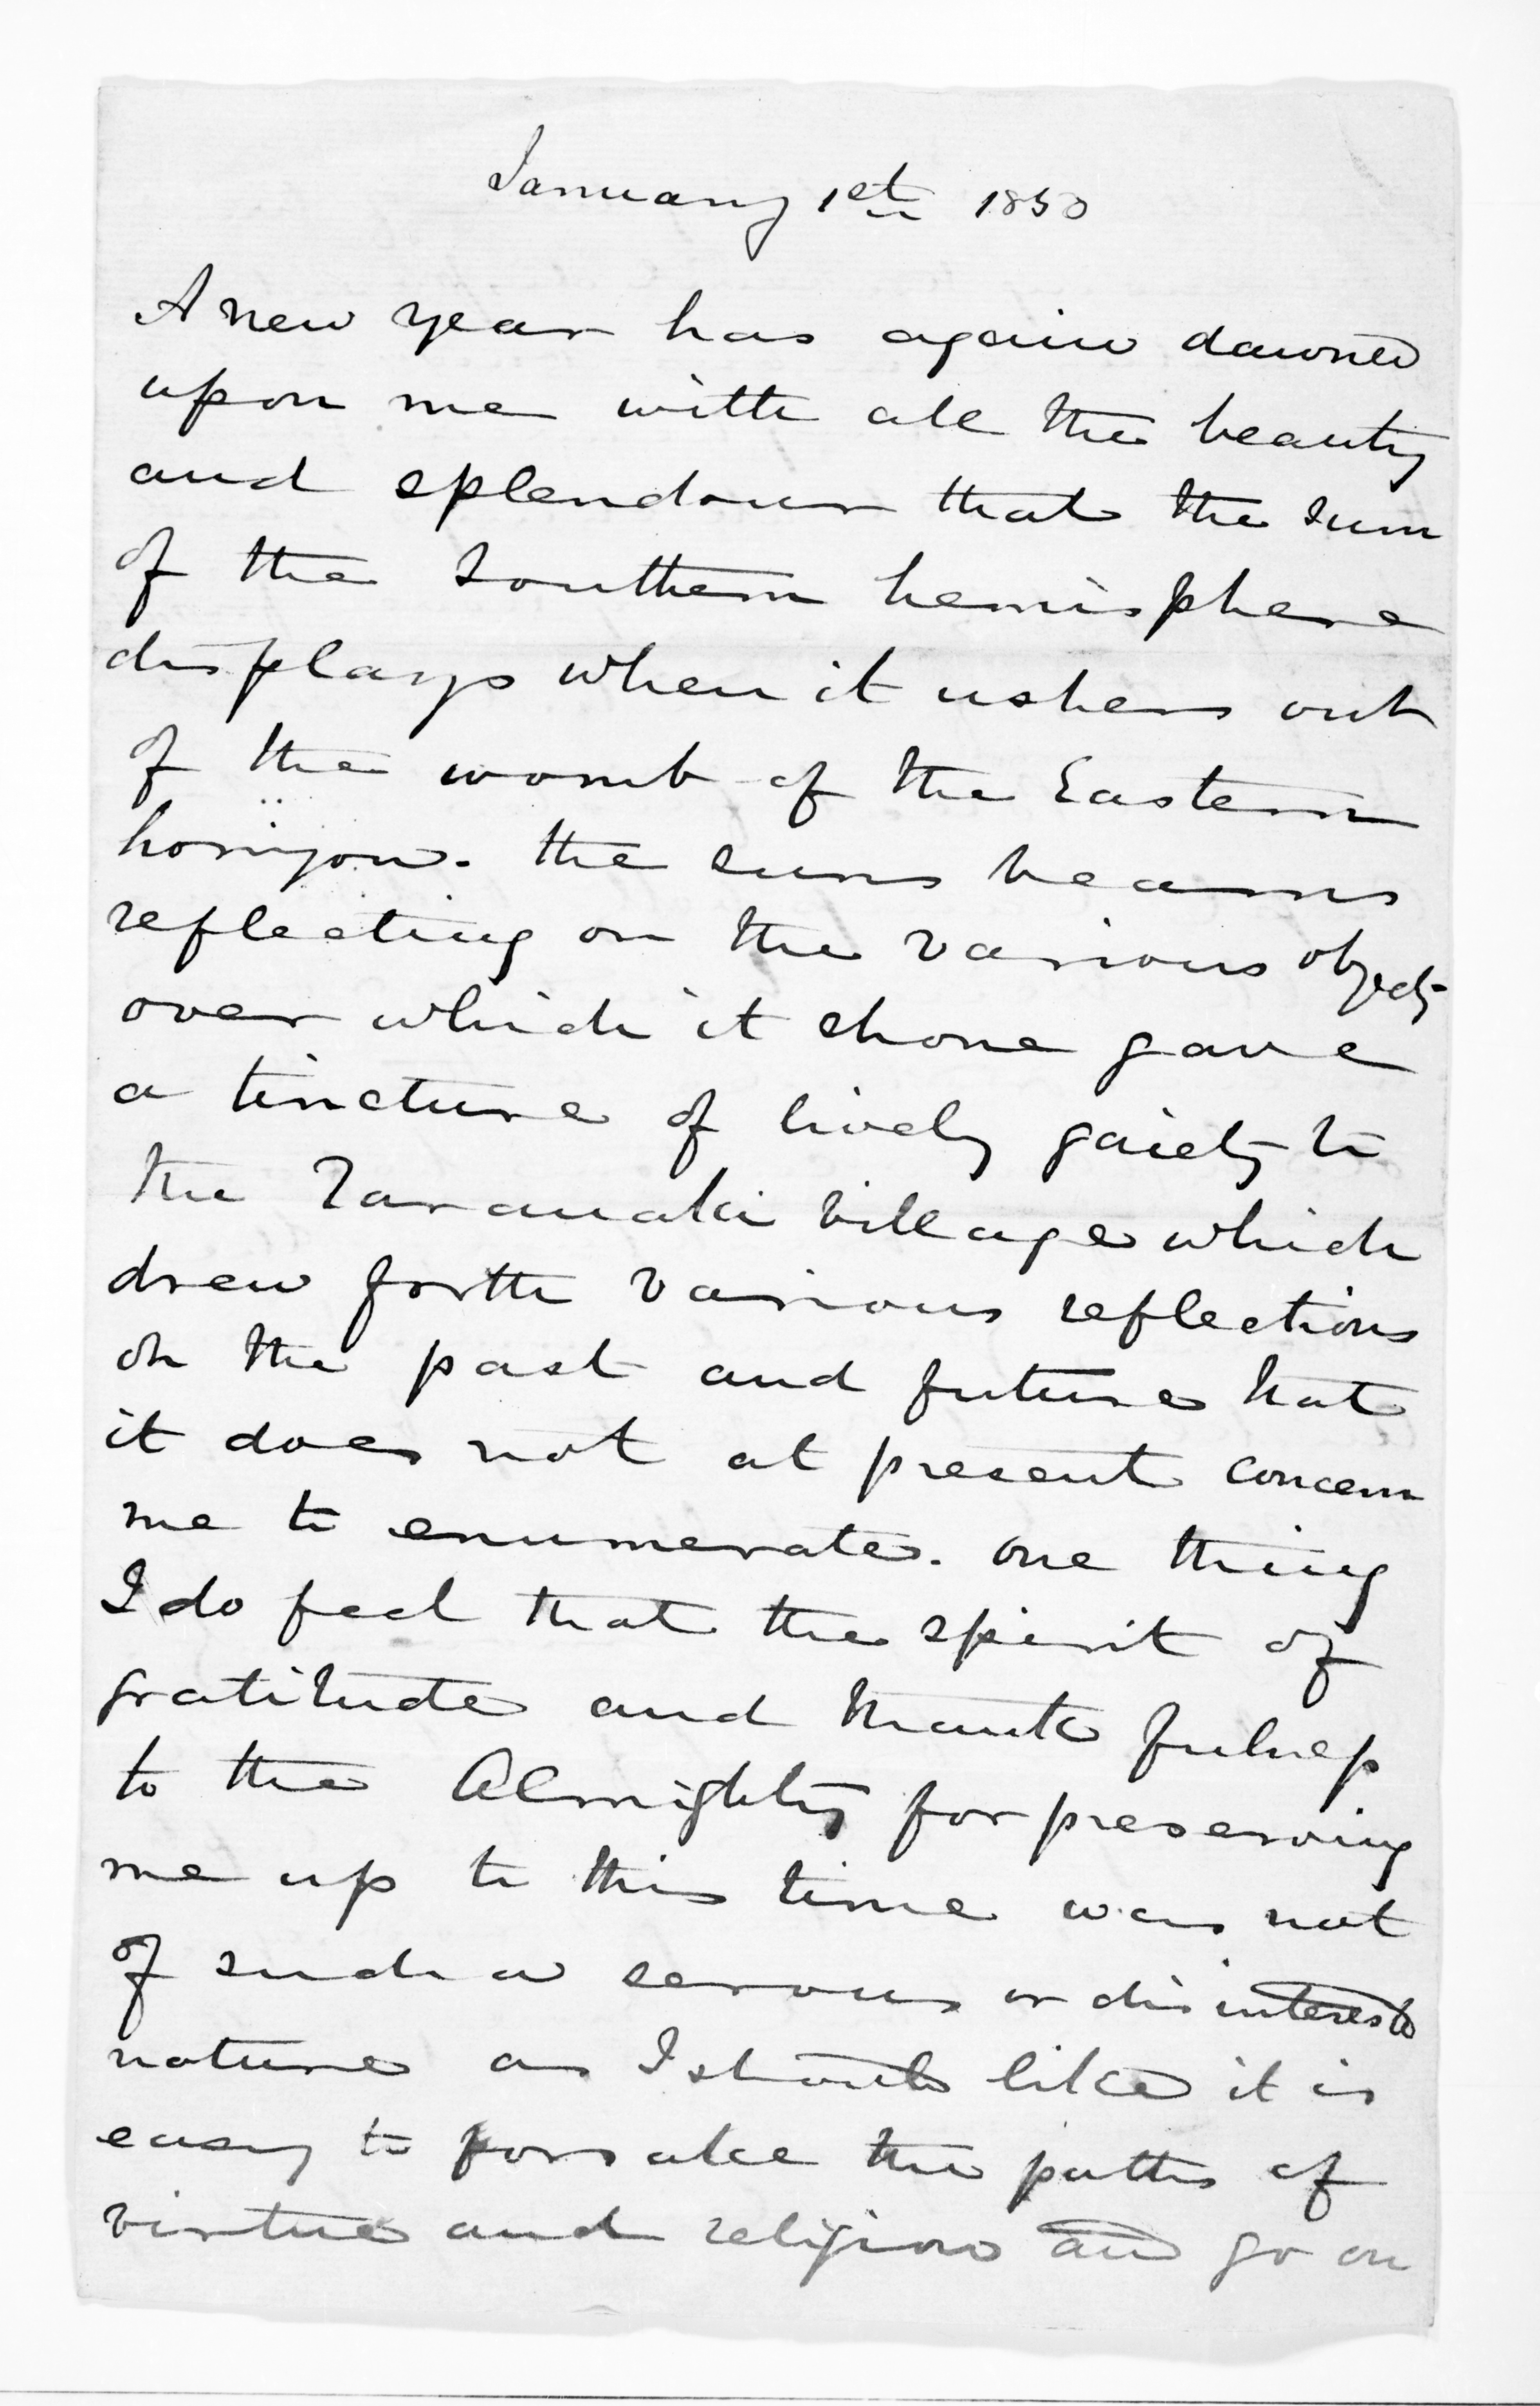 January 1st 1850
A new year has again dawned
upon me with all the beauty
and splendour that the sun
of the Southern hemisphere
displays when it ushers out
of the womb of the Eastern
horizon. the suns beams
reflecting on the various objects
over which it shone gave
a tincture of lively gaiety to
the Taranaki village which
drew forth various reflections
on the past and future that
it does not at present concern
me to enumerate. one thing
I do feel that the spirit of
gratitude and thank fulness
to the Almighty for preserving
me up to this time was not
of such a serous or disinterested
nature as I should like it is
easy to forsake the paths of
virtue and religion and go on